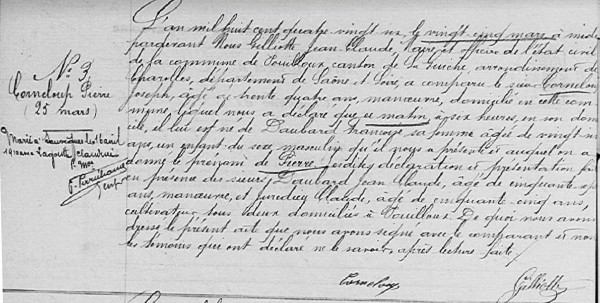 L'an mil huit cent quatre vingt six, le vingt cinq mars à midi
pardevant Nous Gilliotte Jean-Claude, Maire et officier de l'état civil
de la commune de Pouilloux, canton de la Guiche, arrondissement de
Charolles, département de Saône et Loire, a comparu le sieur Corneloup
Joseph, âgé de trente quatre ans, manœuvre, domicilié en cette com-
mune, lequel nous a déclaré que ce matin à six heures, en son domi-
cile, il lui est né de Daubard Françoise sa femme âgée de vingt
ans, un enfant du sexe masculin qu'il nous a présenté et auquel on a
donné le prénom de Pierre. Lesdites déclaration et présentation
en présence des sieurs Daubard Jean Claude, âgé de cinquante
ans, manœuvre, et Claude, âgé de cinquante-cinq ans,
cultivateur, tous deux domiciliés à Pouilloux. De quoi nous avons
dressé le présent acte que nous avons signé avec le comparant et non
les témoins qui ont déclaré ne le savoir, après lecture faite.
N° 9.
Corneloup Pierre
(25 mars)
Marié à le avril
19 avec Lagoutte Claudine
Corneloup
Gilliotte